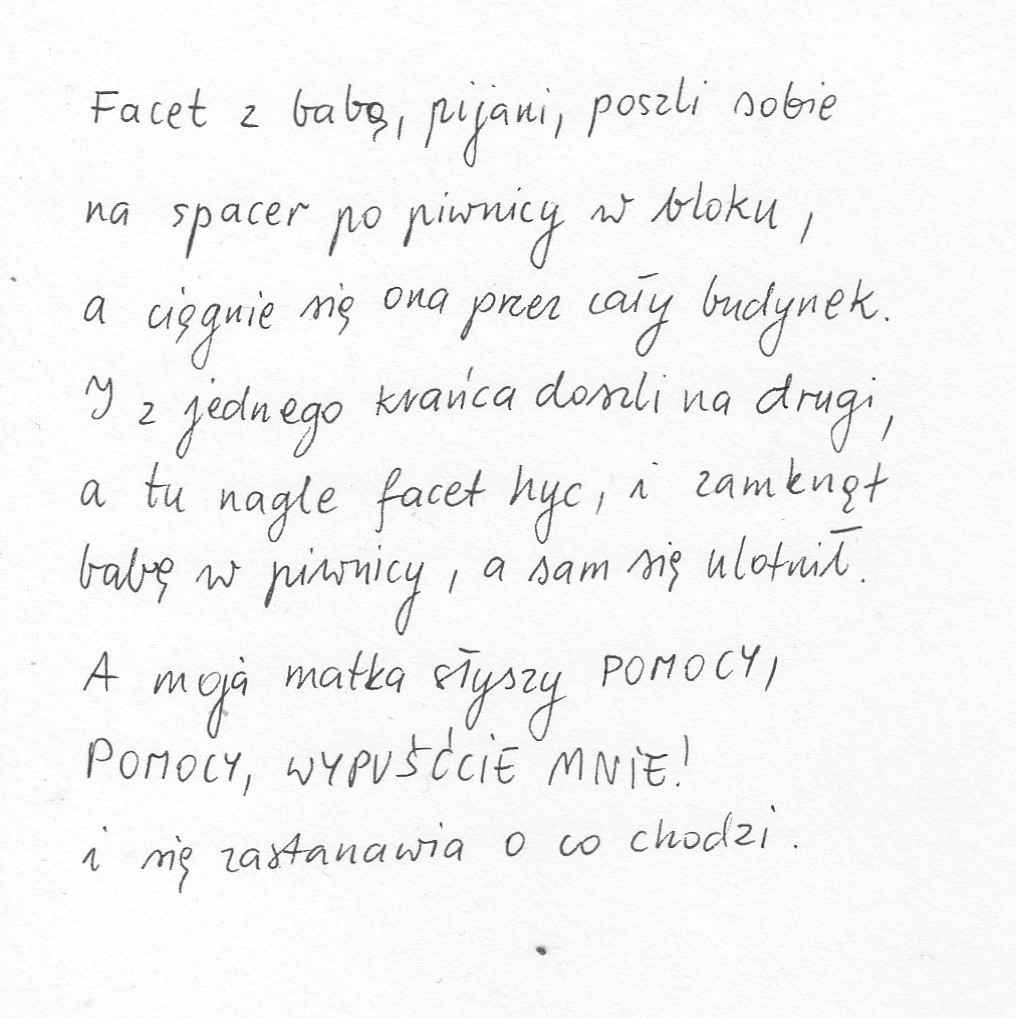 Facet z babą, pijani, poszli sobie
na spacer po piwnicy w bloku,
a ciągnie się ona przez cały budynek.
I z jednego krańca doszli na drugi,
a tu nagle facet hyc, i zamknął
babę w piwnicy, a sam się ulotnił.
A moja matka słyszy POMOCY,
POMOCY, WYPUŚĆCIE MNIE!
i się zastanawia o co chodzi.